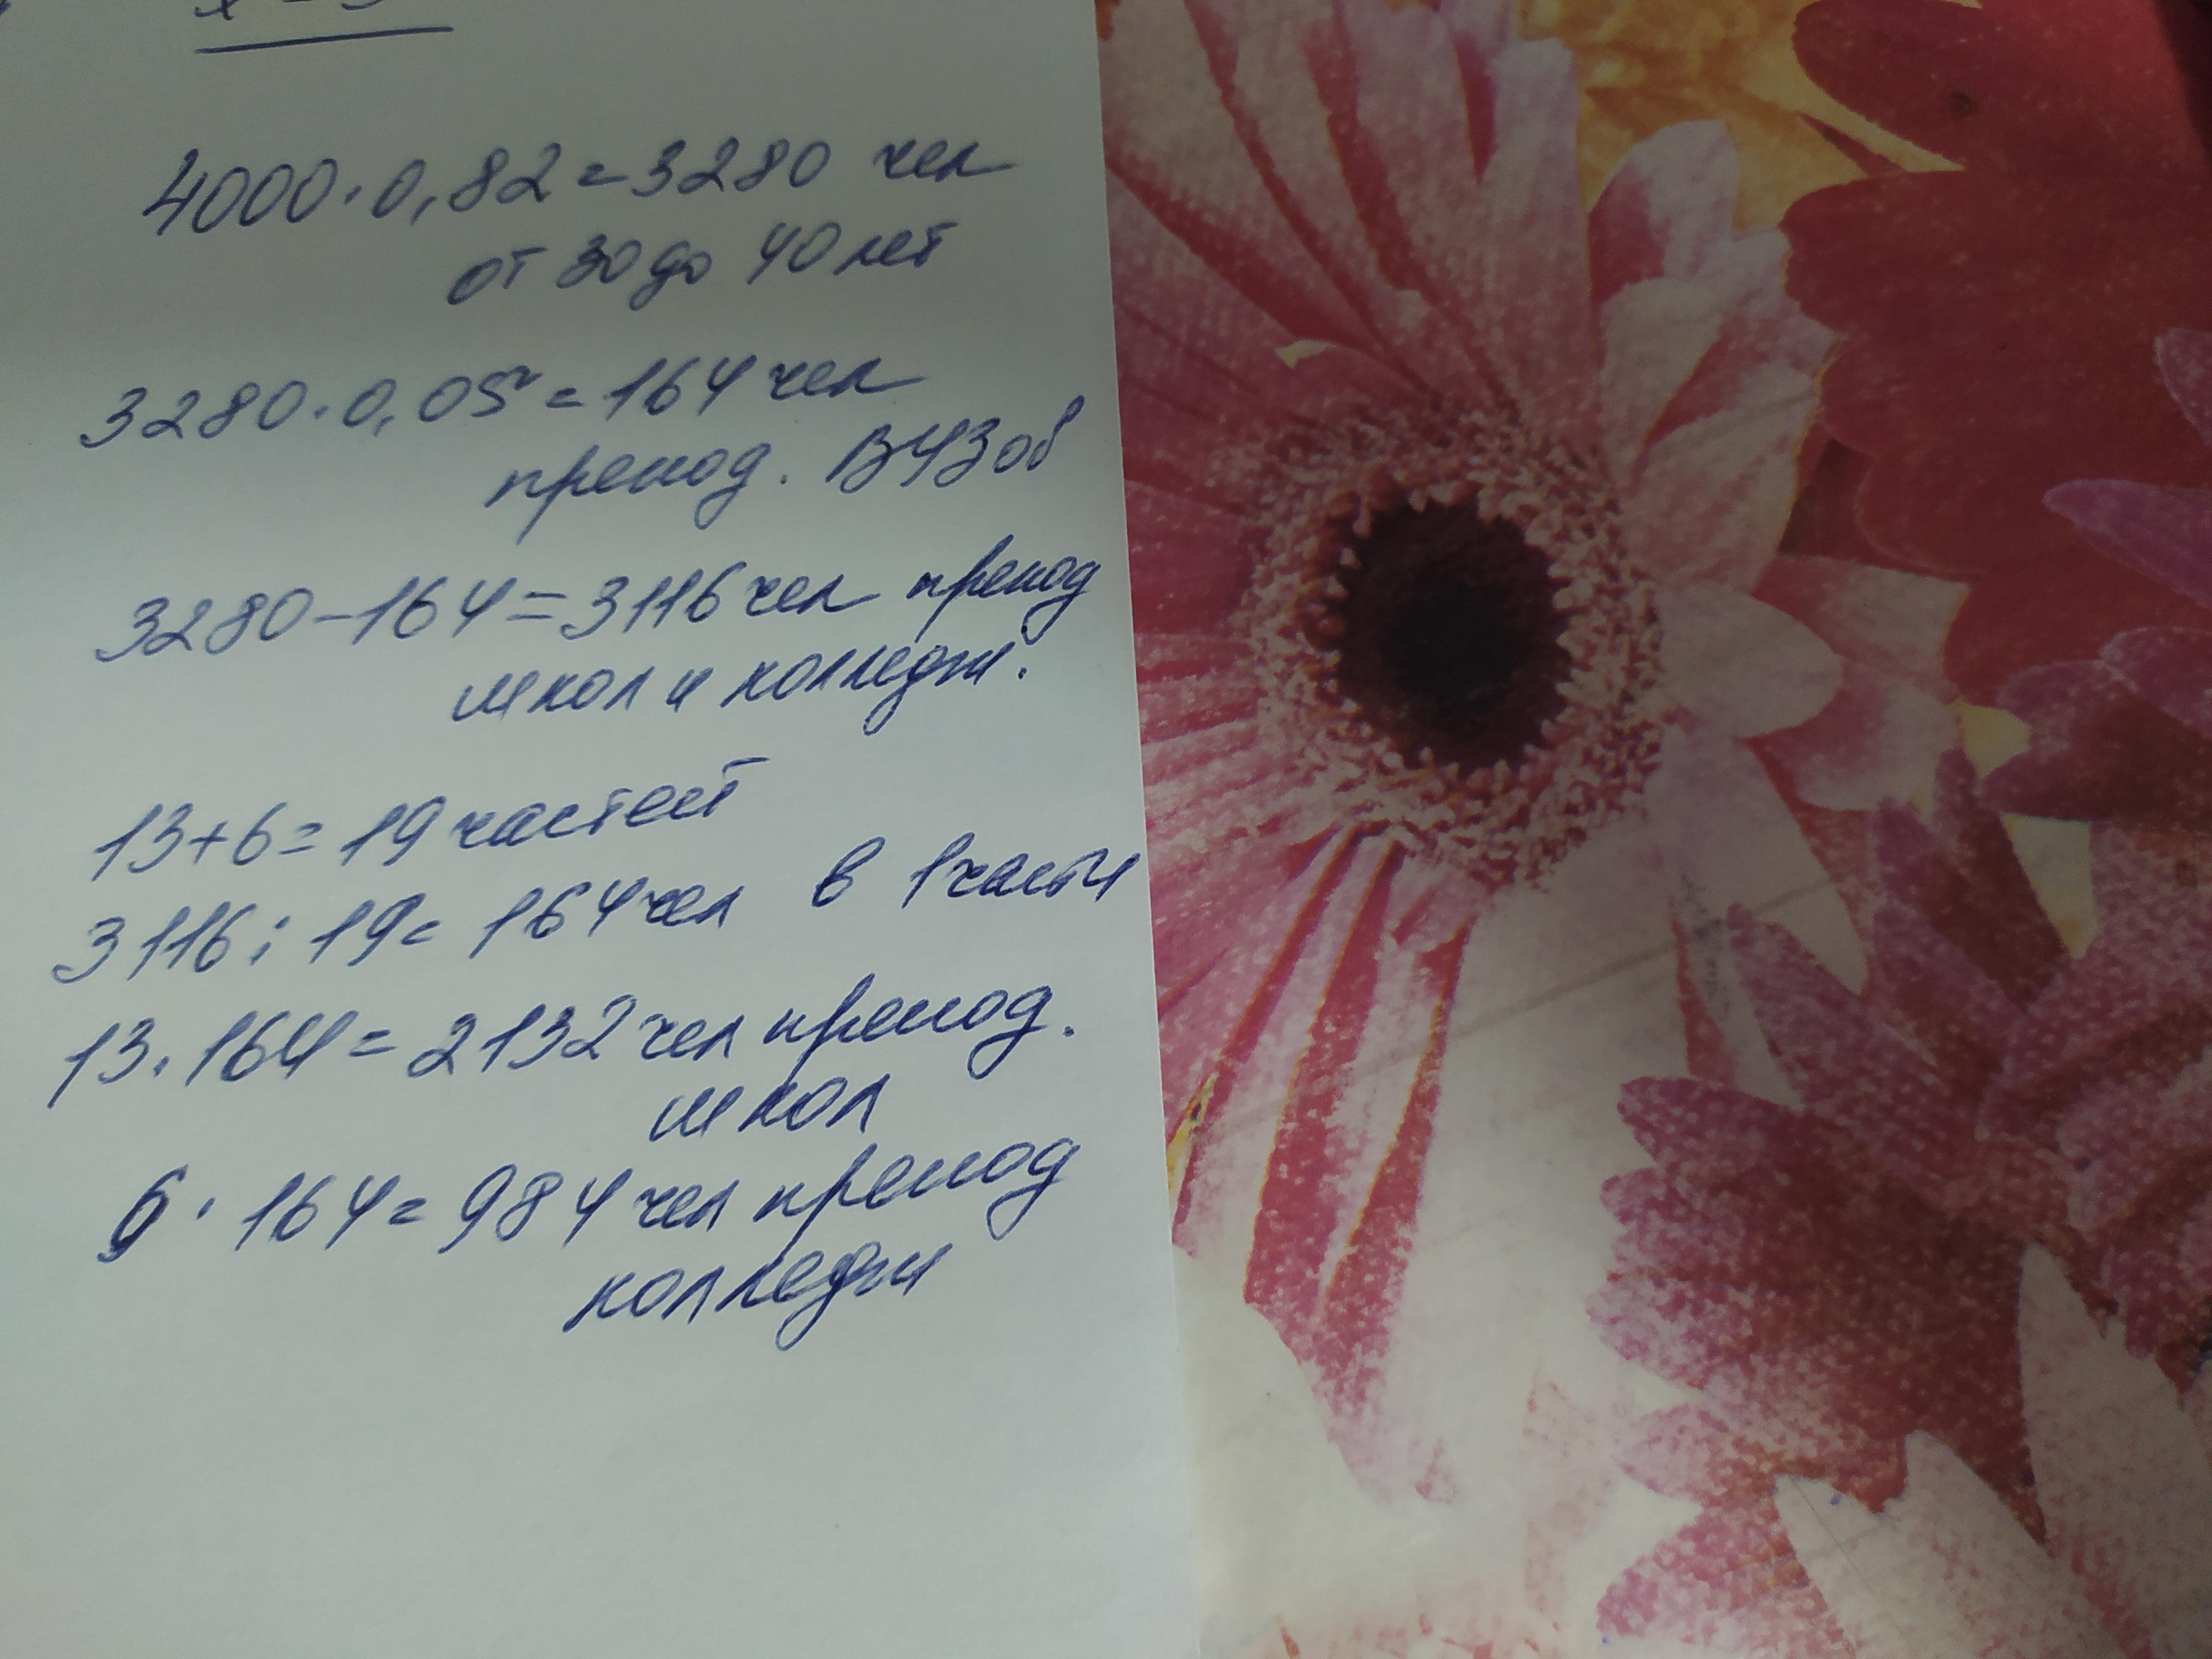 4000·0,82=3280 чел
от 30 до 40 лет
3280·0,05=164 чел
препод. ВУЗов
3280-164=3116 чел препод
школ и колледж.
13+6=19 частей
3116:19=164 чел в 1 части
13·164=2132 чел препод.
школ
6·164=984 чел препод
колледж